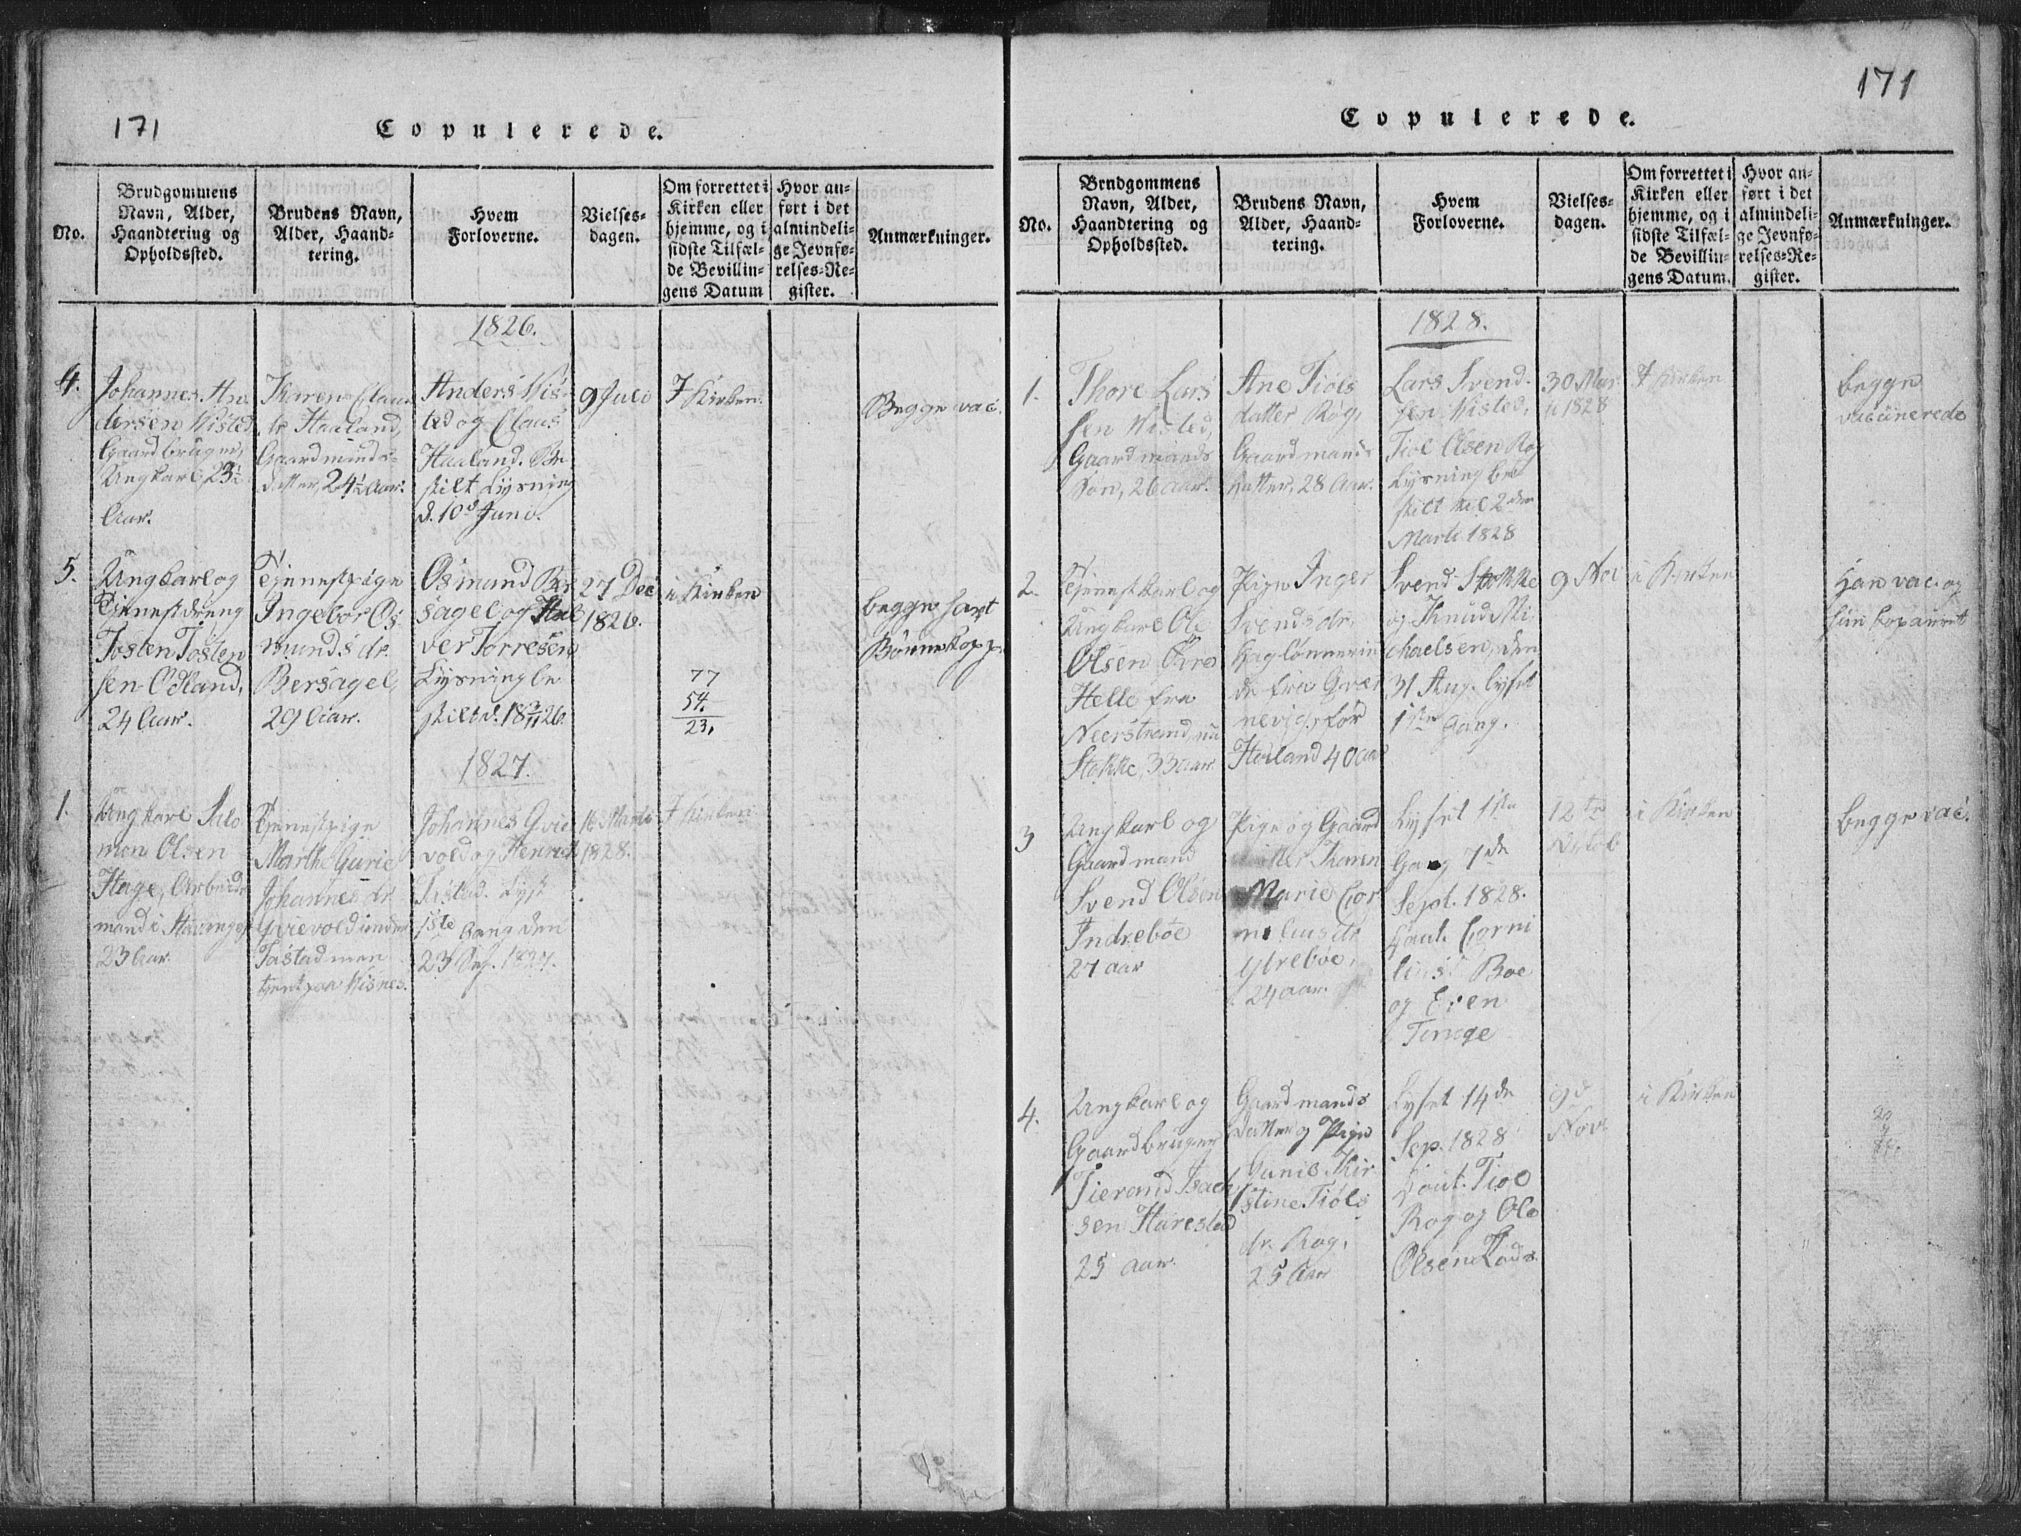 171
Copulerede.
No.
Brudgommens
Navn, Alder,
Haandtering og
Opholdssted.
Brudens Navn,
Alder, Haand-
tering.
Hvem
Forloverne.
Vielses-
dagen.
Om forrettet i
Kirken eller
hjemme, og i
sidste Tilfæl-
de Bevillin-
gens Datum
Hvor an-
ført i det
almindeli-
ge Jevnfø-
relses-Re-
gister.
Anmærkninger.
1826.
4.
Johannes An
dersen Wisted
Gaardbruger,
Ungkarl, 23½
Aar.
Karen Claus
dr Haaland,
Gaardmands-
datter, 24½ Aar.
Anders Wis-
ted og Claus
Haaland. Be-
stilt Lysning
d. 10d Juno.
9 Juli
I Kirken.
Begge vac.
5.
Ungkarl og
Tjenestdreng
Tosten Tosten
sen Odland,
24 Aar.
Tjenestpige
Ingebor Os-
munds dr.
Bersagel,
29 Aar.
Osmund Ber
sagel og Hal
ver Torresen
Lysning be
stilt d. 18 3/11 26.
27 Dec
1826.
i Kirken
77
54.
23,
begge havt
Børnekopp.
1827.
1.
Ungkarl Salo
mon Olsen
Hage, Arbeids
mand i Stavanger
23 Aar.
Tjenestpige
Marthe Gurie
Johannes dr
Qvievold
Tastad men
tjent paa Visnes.
Johannes Qvie
vold og Henrich
Tastad. Lyst
1ste Gang den
23 Sep. 1827.
16 Marti
1828.
I Kirken
171
Copulerede.
No.
Brudgommens
Navn, Alder,
Haandtering og
Opholdssted.
Brudens Navn,
Alder, Haand-
tering.
Hvem
Forloverne.
Vielses-
dagen.
Om forrettet i
Kirken eller
hjemme, og i
sidste Tilfæl-
de Bevillin-
gens Datum.
Hvor an-
ført i det
almindeli-
ge Jevnfø-
relses-Re-
gister.
Anmærkninger.
1828.
1.
Thore Lars
sen Wisted,
Gaardmands
Søn, 26 Aar.
Ane Tiøls
datter Røg,
Gaardmands
datter, 28 Aar.
Lars Svend-
sen Wisted,
Tiøl Olsen Røg
Lysning be
stilt til 2den
Marti 1828
30 Mar
ti 1828
I Kirken
begge
vaccinerede
2.
Tjenestkarl og
Ungkarl Ole
Olsen Øvre
Helle fra
Neerstrand, nu
Stokke, 33 aar
Pige Inger
Svendsdr,
Daglønnerin
de fra Qvær
nevig, før
Haaland 40 aar
Svend Stokke
og Knud Mi
chaelsen, den
31 Aug. lyset
1ste Gang.
9 Nov
i Kirken
Han vac. og
hun kopauret
3
Ungkarl og
Gaardmand
Svend Olsen
Indrebøe
27 aar
Pige og Gaard
datter Karen
Marie Cor
neliusdr
Ytrebøe,
24 aar.
Lyset 1ste
Gang 7de
Sept. 1828.
Caut. Corni
lius Boe
og Even
Tunge
12te
Octob
i Kirken
begge vac.
4.
Ungkarl og
Gaardbruger
Tierand Isach
sen Harestad
25 aar.
Gaardmands
datter og Pige
Gunie Kir
stine Tiøls
dr. Røg,
25 Aar
Lyset 14de
Sep. 1828
Caut. Tiøl
Røg og Ole
Olsen Tods.
9d
Novr
i Kirken